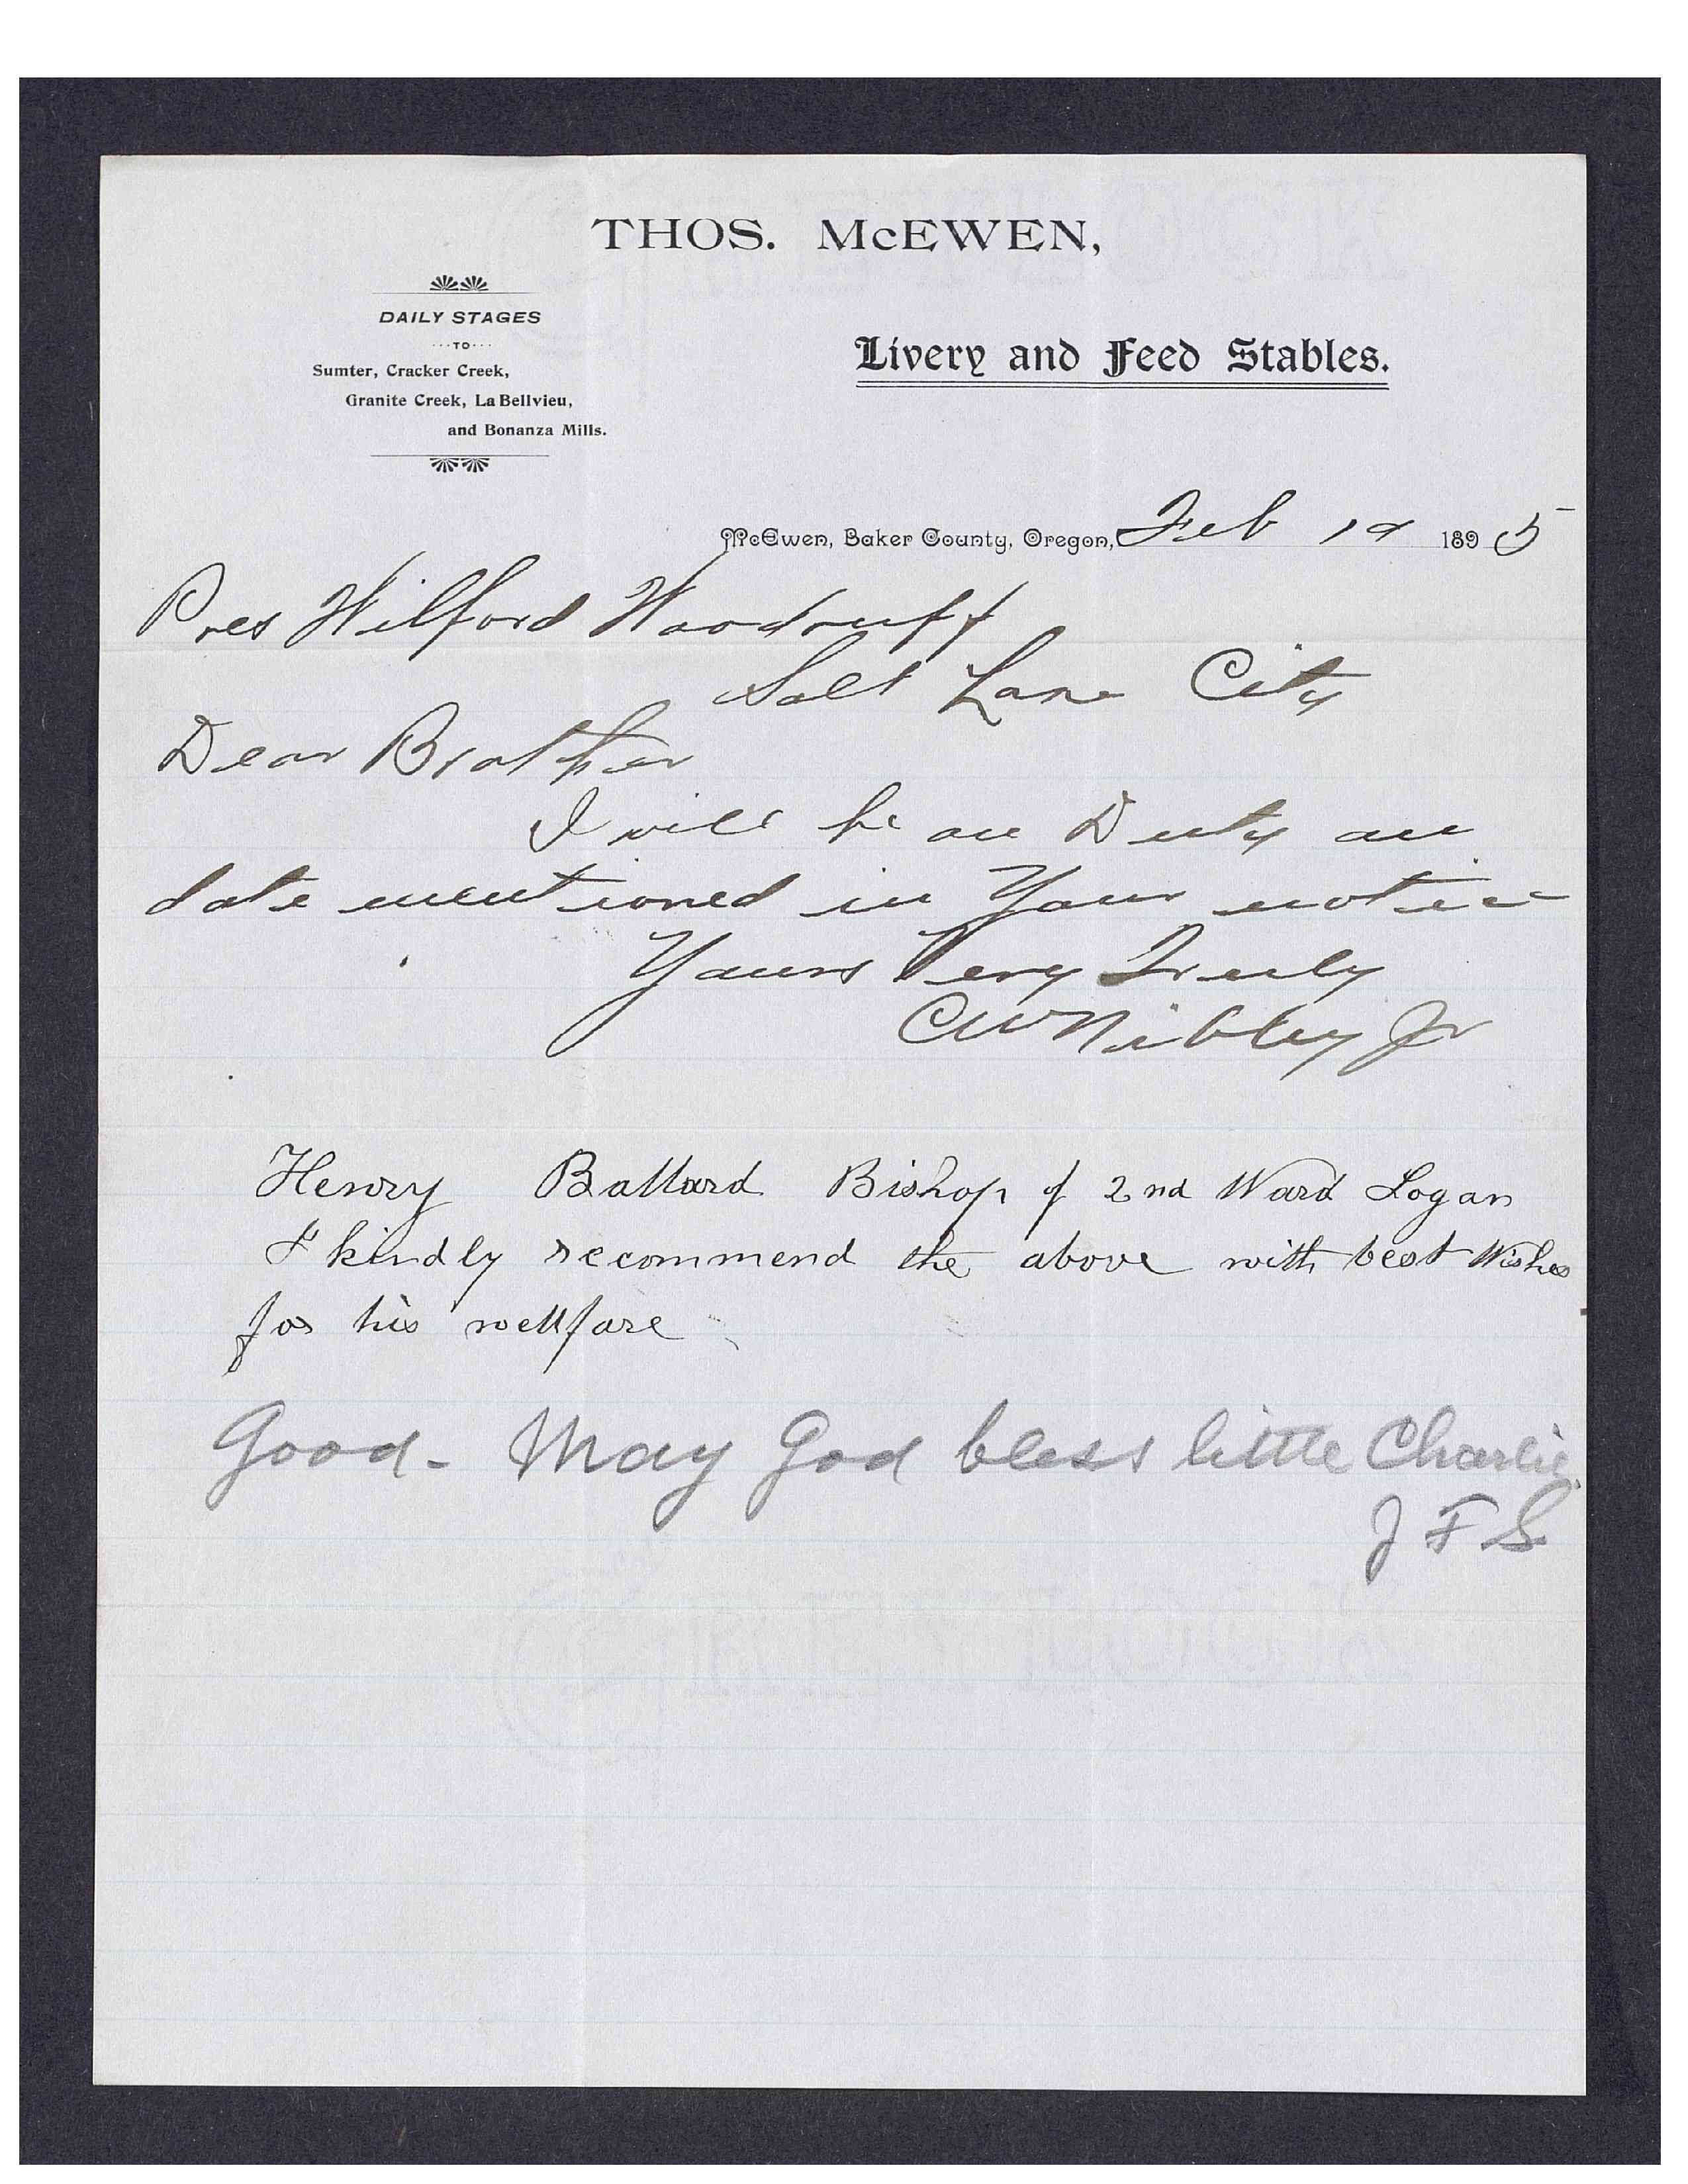 THOS. McEWEN,
DAILY STAGES
···TO···
Sumter, Cracker Creek,
Granite Creek, La Bellvieu,
and Bonanza Mills.
Livery and Feed Stables.
McEwen, Baker County, Oregon, Feb 189 5
Pres Wilford Woodruff
Salt Lake City
Dear Brother
I will be on Duty on
date mentioned in Your notice
Yours Very Truly
CW Nibley Jr
Henry Ballard Bishop of 2nd Ward Logan
I kindly recommend the above with best Wishes
for his wellfare
Good - May God bless little Charlie.
J F S